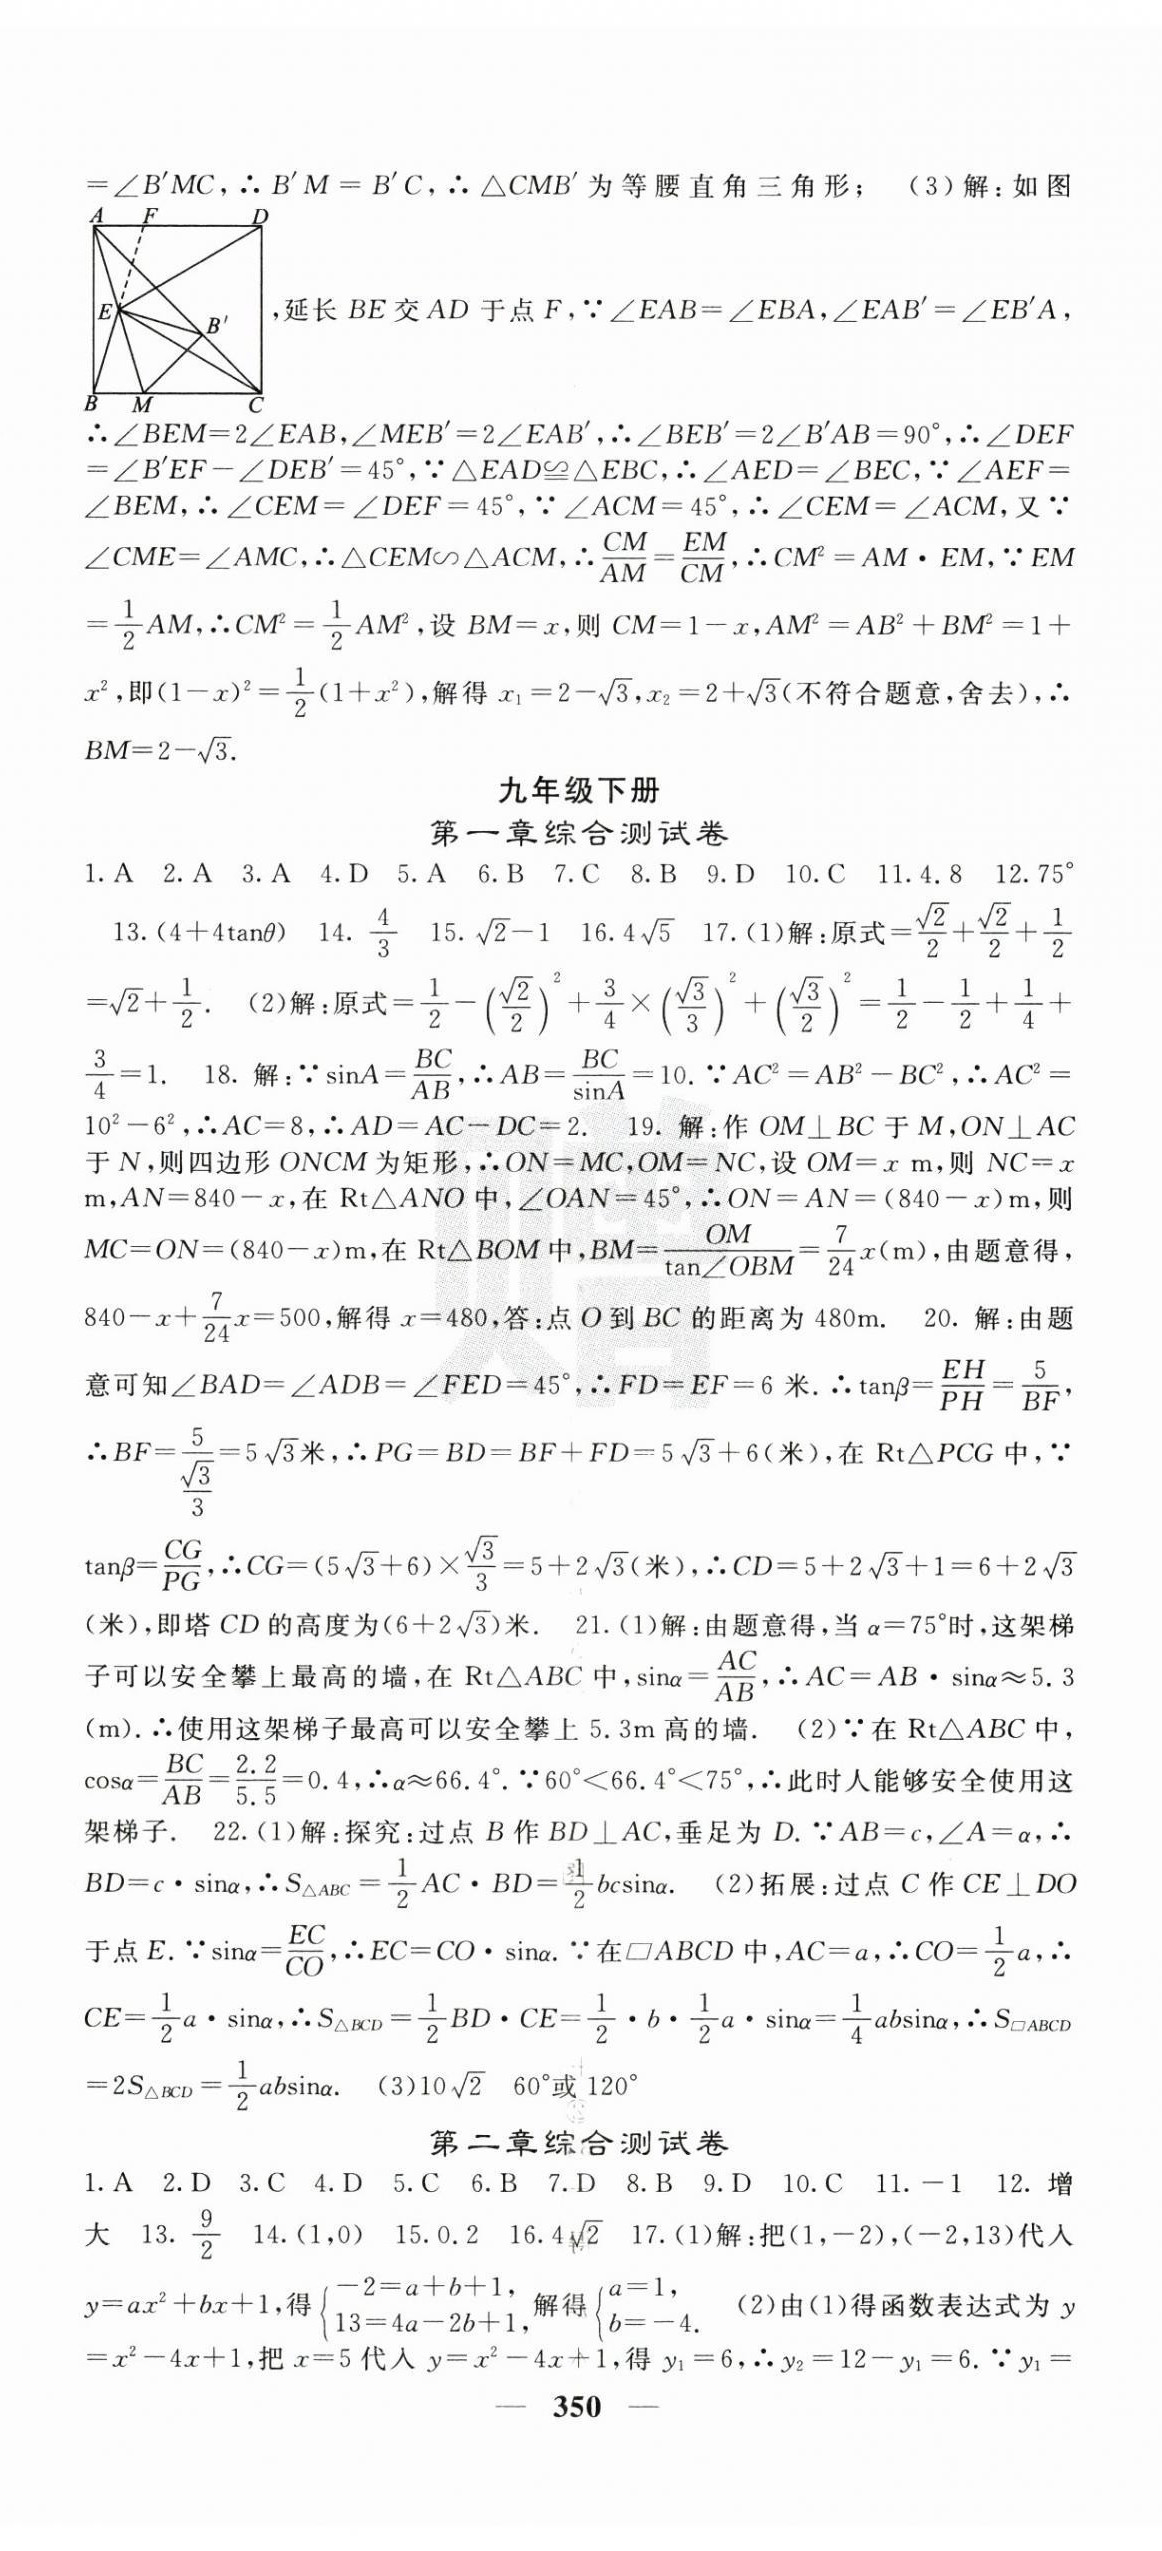 =∠B′MC,∴ B′M = B′C,∴ △CMB′ 为等腰直角三角形; (3)解:如图
A F D
E B′
B M C
,延长 BE 交 AD 于点 F,∵∠EAB=∠EBA,∠EAB′=∠EB′A,
∴∠BEM=2∠EAB,∠MEB′=2∠EAB′,∴∠BEB′=2∠B′AB=90°,∴∠DEF
=∠B′EF-∠DEB′=45°,∵△EAD≌△EBC,∴∠AED=∠BEC,∵∠AEF=
∠BEM,∴∠CEM=∠DEF=45°,∵∠ACM=45°,∴∠CEM=∠ACM,又∵
∠CME=∠AMC,∴△CEM∽△ACM,∴CM/AM=EM/CM,∴CM²=AM·EM,∵EM
=1/2AM,∴CM²=1/2AM²,设 BM=x,则 CM=1-x,AM²=AB²+BM²=1+
x²,即(1-x)²=1/2(1+x²),解得 x₁=2-√3,x₂=2+√3(不符合题意,舍去),∴
BM=2-√3.
九年级下册
第一章综合测试卷
1.A 2.A 3.A 4.D 5.A 6.B 7.C 8.B 9.D 10.C 11.4.8 12.75°
13.(4+4tanθ) 14. 4/3 15.√2-1 16.4√5 17.(1)解:原式=√2/2+√2/2+1/2
=√2+1/2. (2)解:原式=1/2-(√2/2)²+3/4×(√3/3)²+(√3/2)²=1/2-1/2+1/4+
3/4=1. 18. 解:∵sinA=BC/AB,∴AB=BC/sinA=10.∵AC²=AB²-BC²,∴AC²=
10²-6²,∴AC=8,∴AD=AC-DC=2. 19. 解:作 OM⊥BC 于 M,ON⊥AC
于 N,则四边形 ONCM 为矩形,∴ON=MC,OM=NC,设 OM=x m,则 NC=x
m,AN=840-x,在 Rt△ANO 中,∠OAN=45°,∴ON=AN=(840-x)m,则
MC=ON=(840-x)m,在 Rt△BOM 中,BM=OM/tan∠OBM=7/24x(m),由题意得,
840-x+7/24x=500,解得 x=480,答:点 O 到 BC 的距离为 480m. 20. 解:由题
意可知∠BAD=∠ADB=∠FED=45°,∴FD=EF=6 米.∴tanβ=EH/PH=5/BF,
∴BF=5/(√3/3)=5√3米,∴PG=BD=BF+FD=5√3+6(米),在 Rt△PCG 中,∵
tanβ=CG/PG,∴CG=(5√3+6)×√3/3=5+2√3(米),∴CD=5+2√3+1=6+2√3
(米),即塔 CD 的高度为(6+2√3)米. 21.(1)解:由题意得,当 α=75°时,这架梯
子可以安全攀上最高的墙,在 Rt△ABC 中,sinα=AC/AB,∴AC=AB·sinα≈5.3
(m).∴使用这架梯子最高可以安全攀上 5.3m 高的墙. (2)∵在 Rt△ABC 中,
cosα=BC/AB=2.2/5.5=0.4,∴α≈66.4°.∵60°<66.4°<75°,∴此时人能够安全使用这
架梯子. 22.(1)解:探究:过点 B 作 BD⊥AC,垂足为 D.∵AB=c,∠A=α,∴
BD=c·sinα,∴S△ABC=1/2AC·BD=1/2bcsinα. (2)拓展:过点 C 作 CE⊥DO
于点 E.∵sinα=EC/CO,∴EC=CO·sinα.∵在□ABCD 中,AC=a,∴CO=1/2a,∴
CE=1/2a·sinα,∴S△BCD=1/2BD·CE=1/2·b·1/2a·sinα=1/4absinα,∴S□ABCD
=2S△BCD=1/2absinα. (3)10√2 60°或 120°
第二章综合测试卷
1.A 2.D 3.C 4.D 5.C 6.B 7.D 8.B 9.D 10.C 11.-1 12. 增
大 13. 9/2 14.(1,0) 15.0.2 16.4√2 17.(1)解:把(1,-2),(-2,13)代入
y=ax²+bx+1,得{-2=a+b+1, 13=4a-2b+1, 解得{a=1, b=-4. (2)由(1)得函数表达式为 y
=x²-4x+1,把 x=5 代入 y=x²-4x+1,得 y₁=6,∴y₂=12-y₁=6.∵y₁=
— 350 —